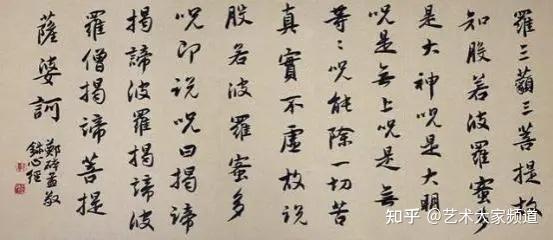 羅三藐三菩提故
知般若波羅蜜多
是大神呪是大明
呪是無上呪是無
等〻呪能除一切苦
真實不虛故說
般若波羅蜜多
呪即說呪曰揭諦
揭諦波羅揭諦波
羅僧揭諦菩提
薩婆訶
鄭孟敬
錄心經
知乎 @艺术大家频道